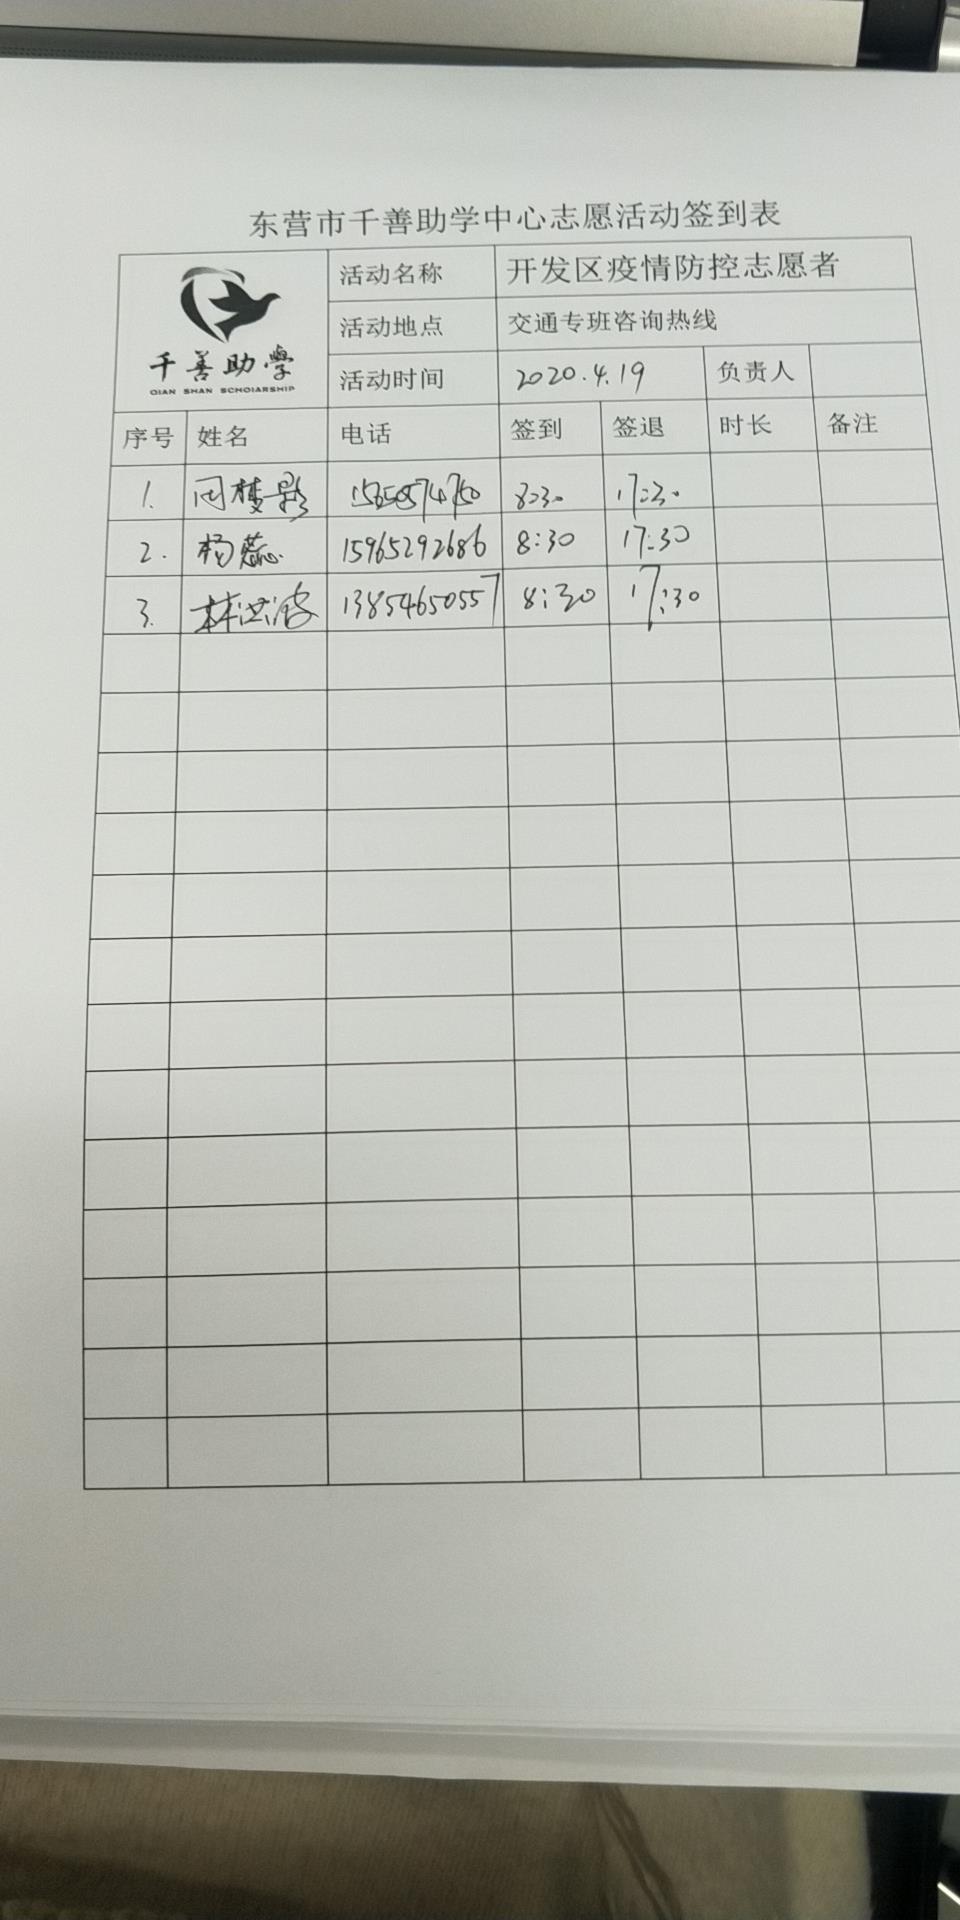 东营市千善助学中心志愿活动签到表
千善助学
QIAN SHAN SCHOLARSHIP
活动名称 开发区疫情防控志愿者
活动地点 交通专班咨询热线
活动时间 2020.4.19 负责人
序号 姓名 电话 签到 签退 时长 备注
1. 8:30 17:30
2. 杨蕊 15965292686 8:30 17:30
3. 林洪波 13854650557 8:30 17:30